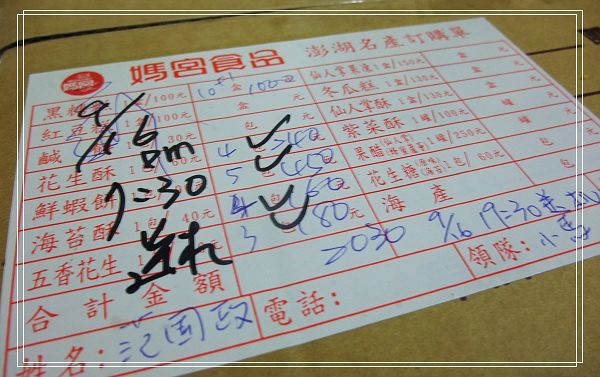 媽宮食品 澎湖名產訂購單
黑糖糕 1盒/100元 10 盒 1000元 仙人掌果凍 1盒/150元 盒
紅豆糕 1盒/100元 盒 元 冬瓜糕 1盒/130元 盒
鹹 30元 包 元 仙人掌酥 1盒/130元 盒
花生酥 1包/60元 4 包 240元 紫菜酥 1罐/100元 罐
鮮蝦餅 5 包 450元 果醋 1罐/250元 罐
海苔酥 1包/40元 4 包 160元 花生糖 1包/60元 包
五香花生 3 包 180元 海產
合計金額 2030 9/16 19:30 送
姓名: 范國政 電話: 領隊: 小
9/16
pm
7:30
送